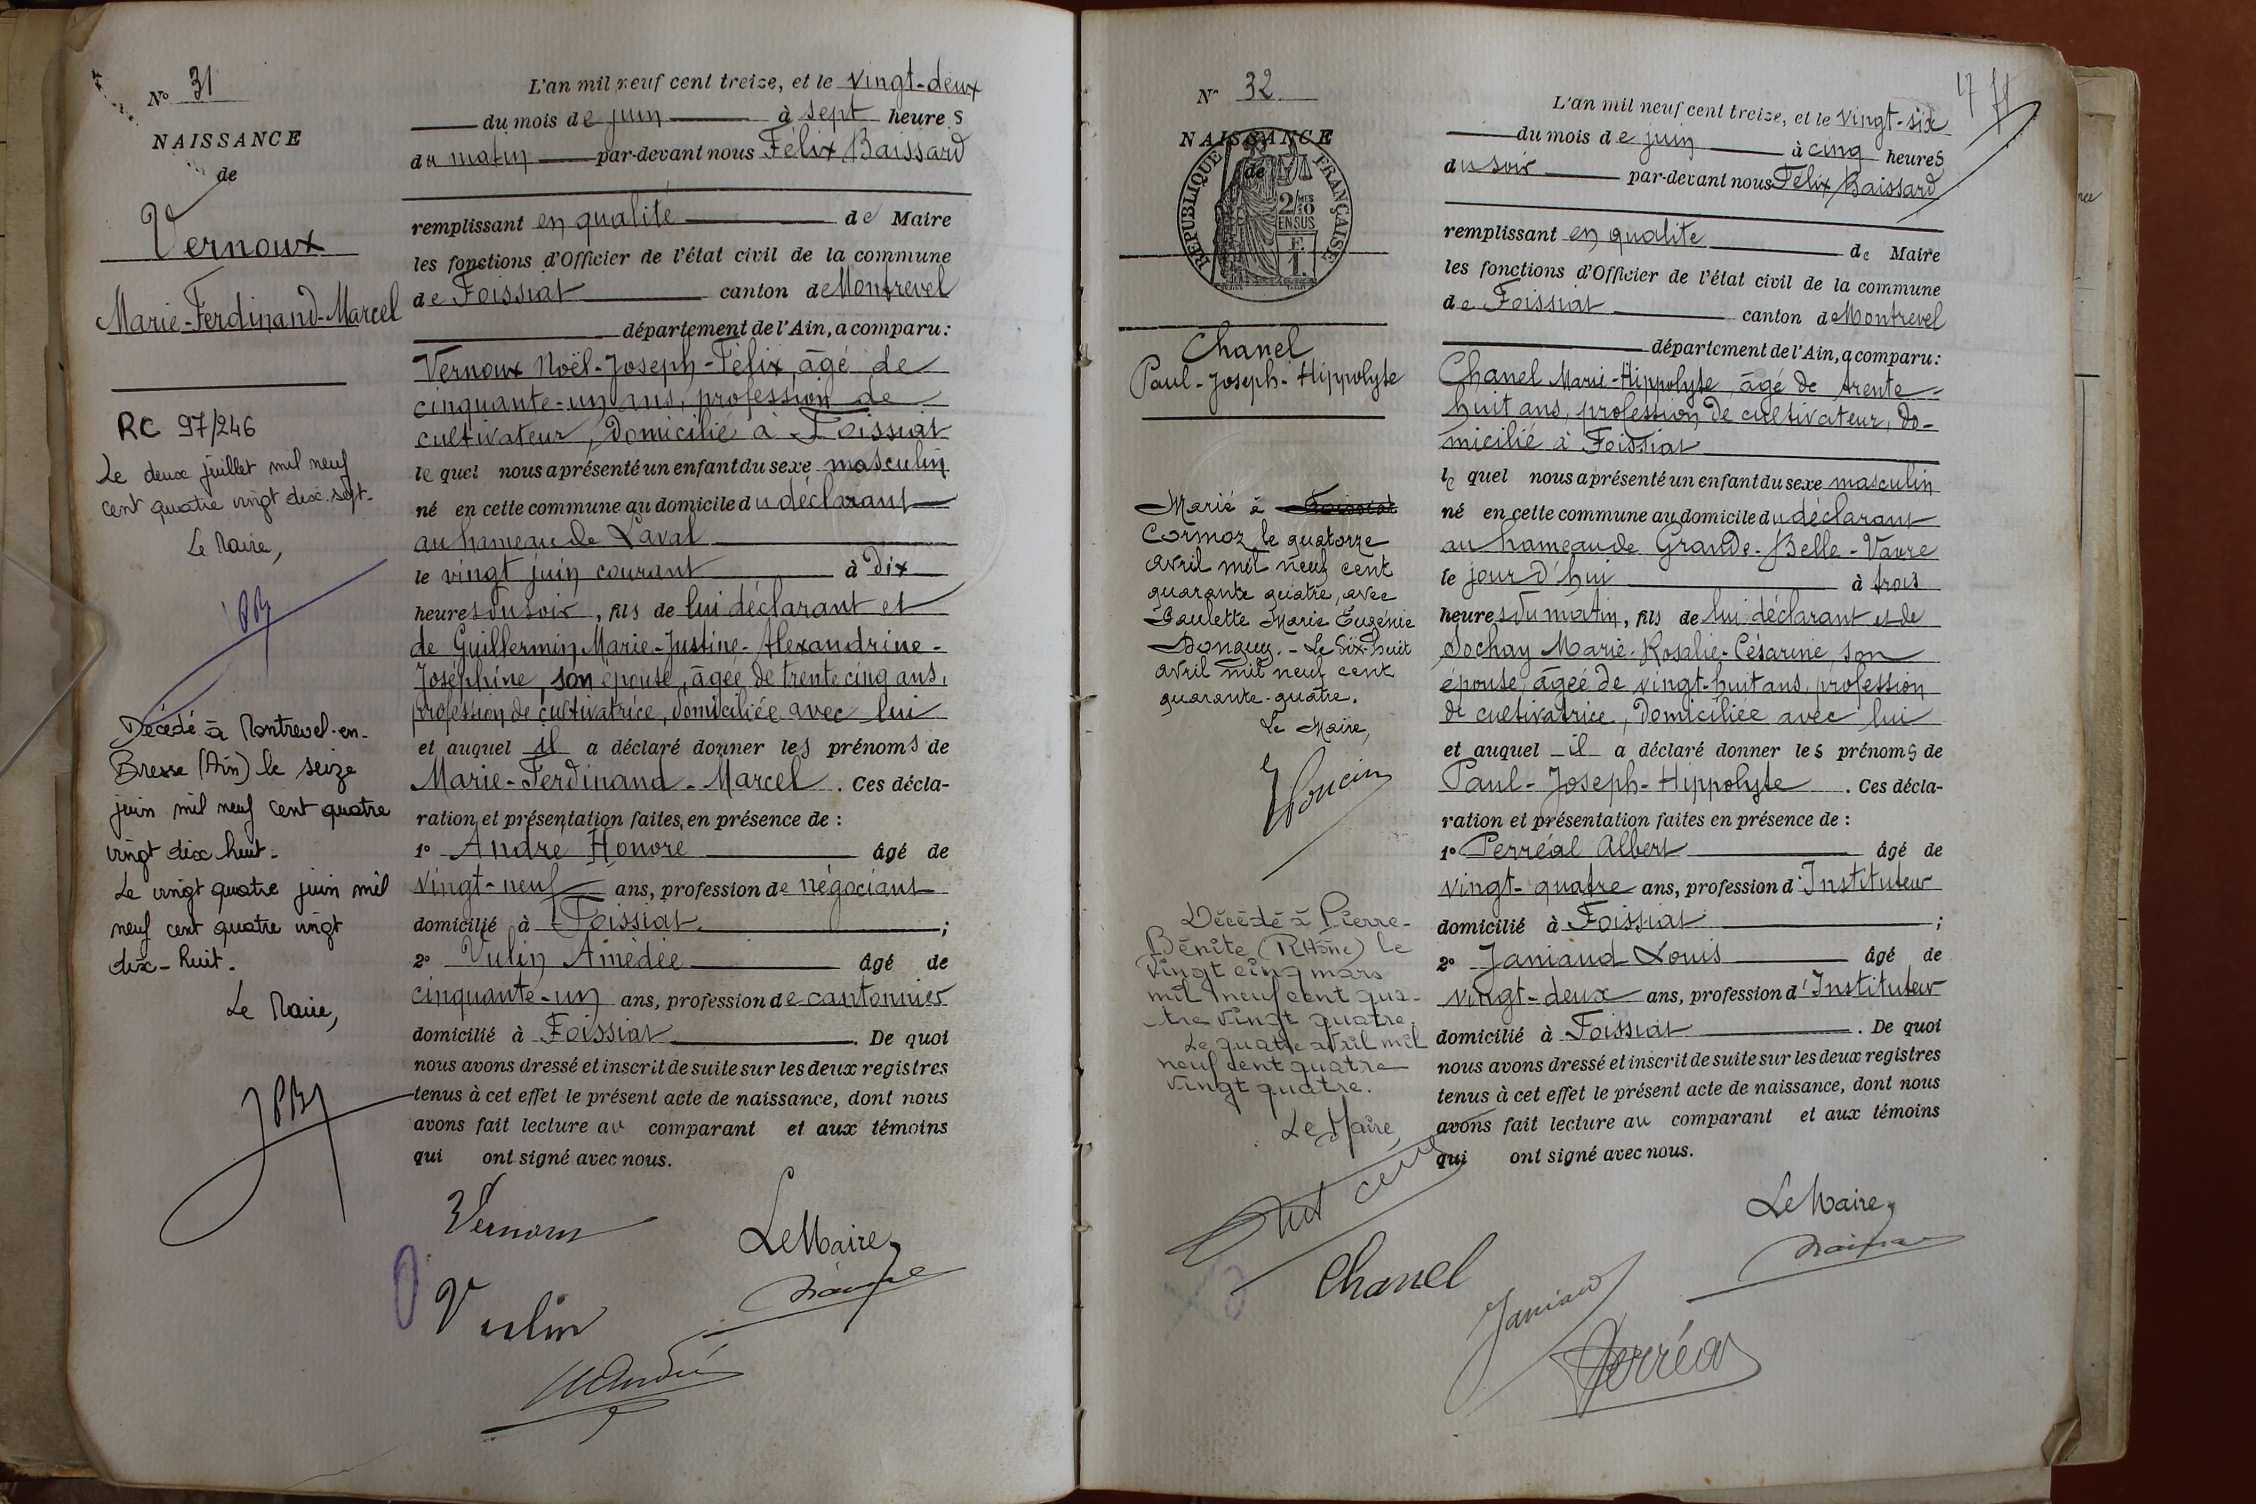 N° 31
NAISSANCE
de
Vernoux
Marie-Ferdinand-Marcel
RC 97/246
Le deux juillet mil neuf
cent quatre vingt dix-sept.
Le Maire,
Décédé à Montrevel-en-
Bresse (Ain) le seize
juin mil neuf cent quatre
vingt dix huit.
Le vingt quatre juin mil
neuf cent quatre vingt
dix-huit.
Le Maire,
L'an mil neuf cent treize, et le vingt-deux
du mois de juin à sept heures
du matin par-devant nous Félix Baissard
remplissant en qualité de Maire
les fonctions d'Officier de l'état civil de la commune
de Foissiat canton de Montrevel
département de l'Ain, a comparu:
Vernoux Noël-Joseph-Félix, âgé de
cinquante-un ans, profession de
cultivateur, domicilié à Foissiat
lequel nous a présenté un enfant du sexe masculin
né en cette commune au domicile du déclarant
au hameau de Laval
le vingt juin courant à dix
heures du soir, fils de lui déclarant et
de Guillermin Marie-Justine-Alexandrine-
Joséphine, son épouse, âgée de trente cinq ans,
profession de cultivatrice, domiciliée avec lui
et auquel il a déclaré donner les prénoms de
Marie-Ferdinand-Marcel. Ces décla-
ration et présentation faites en présence de :
1° André Honoré âgé de
vingt-neuf ans, profession de négociant
domicilié à Foissiat ;
2° Vulin Amédée âgé de
cinquante-un ans, profession de cantonnier
domicilié à Foissiat. De quoi
nous avons dressé et inscrit de suite sur les deux registres
tenus à cet effet le présent acte de naissance, dont nous
avons fait lecture au comparant et aux témoins
qui ont signé avec nous.
Vernoux
Le Maire,
Vulin
André
N° 32
NAISSANCE
de
REPUBLIQUE FRANÇAISE
2/10 MES
EN SUS
Chanel
Paul-Joseph-Hippolyte
Marié à Foissiat
Cormoz le quatorze
avril mil neuf cent
quarante quatre, avec
Paulette Marie Eugénie
Donguy. - Le dix-huit
avril mil neuf cent
quarante-quatre.
Le Maire,
Décédé à Pierre-
Bénite (Rhône) le
vingt cinq mars
mil neuf cent qua-
tre vingt quatre.
Le quatre avril mil
neuf cent quatre
vingt quatre.
Le Maire,
17
L'an mil neuf cent treize, et le vingt-six
du mois de juin à cinq heures
du soir par-devant nous Félix Baissard
remplissant en qualité de Maire
les fonctions d'Officier de l'état civil de la commune
de Foissiat canton de Montrevel
département de l'Ain, a comparu:
Chanel Marie-Hippolyte, âgé de trente-
huit ans, profession de cultivateur, do-
micilié à Foissiat
lequel nous a présenté un enfant du sexe masculin
né en cette commune au domicile du déclarant
au hameau de Grande-Belle-Vavre
le jour d'hui à trois
heures du matin, fils de lui déclarant et de
Sochay Marie-Rosalie-Césarine, son
épouse, âgée de vingt-huit ans, profession
de cultivatrice, domiciliée avec lui
et auquel il a déclaré donner les prénoms de
Paul-Joseph-Hippolyte. Ces décla-
ration et présentation faites en présence de :
1° Perréal Albert âgé de
vingt-quatre ans, profession d'Instituteur
domicilié à Foissiat ;
2° Janiaud Louis âgé de
vingt-deux ans, profession d'Instituteur
domicilié à Foissiat. De quoi
nous avons dressé et inscrit de suite sur les deux registres
tenus à cet effet le présent acte de naissance, dont nous
avons fait lecture au comparant et aux témoins
qui ont signé avec nous.
Le Maire,
Chanel
Janiaud
Perréal